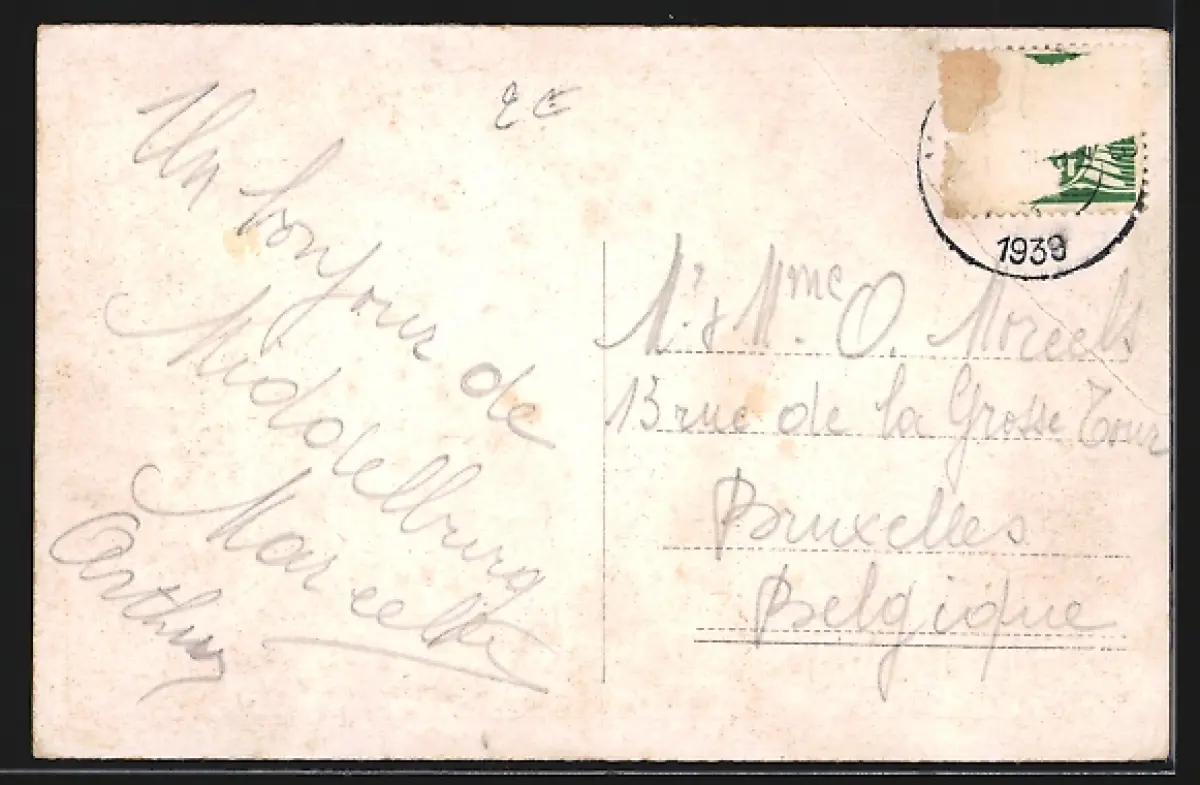 Un bonjour de
Middelburg
Marcelle
Arthur
1939
Mr & Mme O. Moreels
13 rue de la Grosse Tour
Bruxelles
Belgique